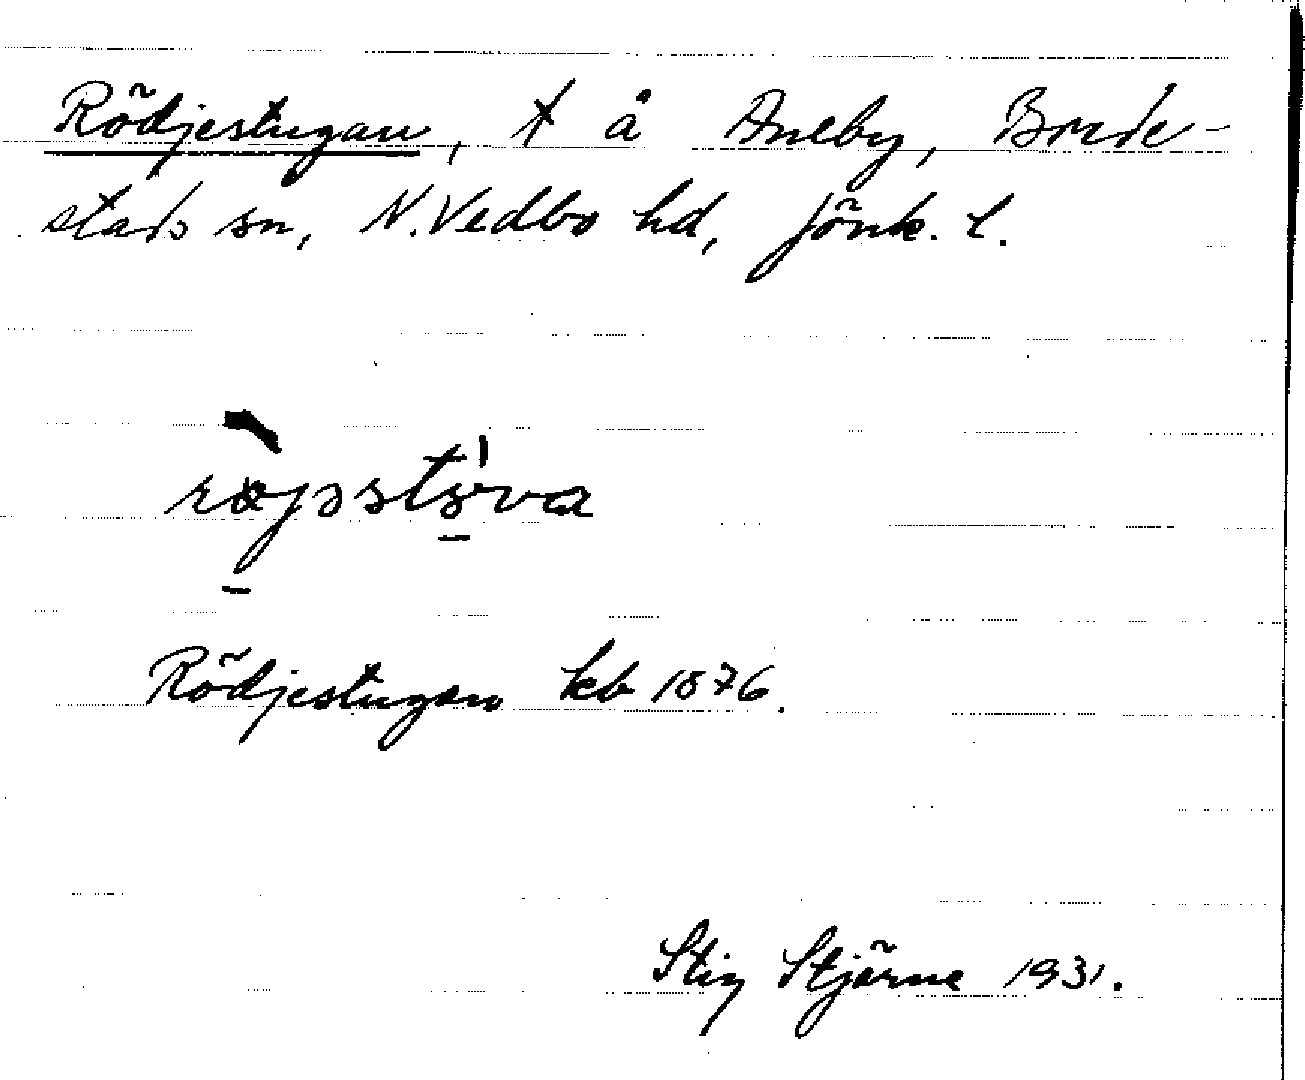 Rödjestugan, t å Aneby, Brede-
stads sn, N. Vedbo hd, Jönk. l.
Rödjestugan kb 1876.
Stig Stjärne 1931.